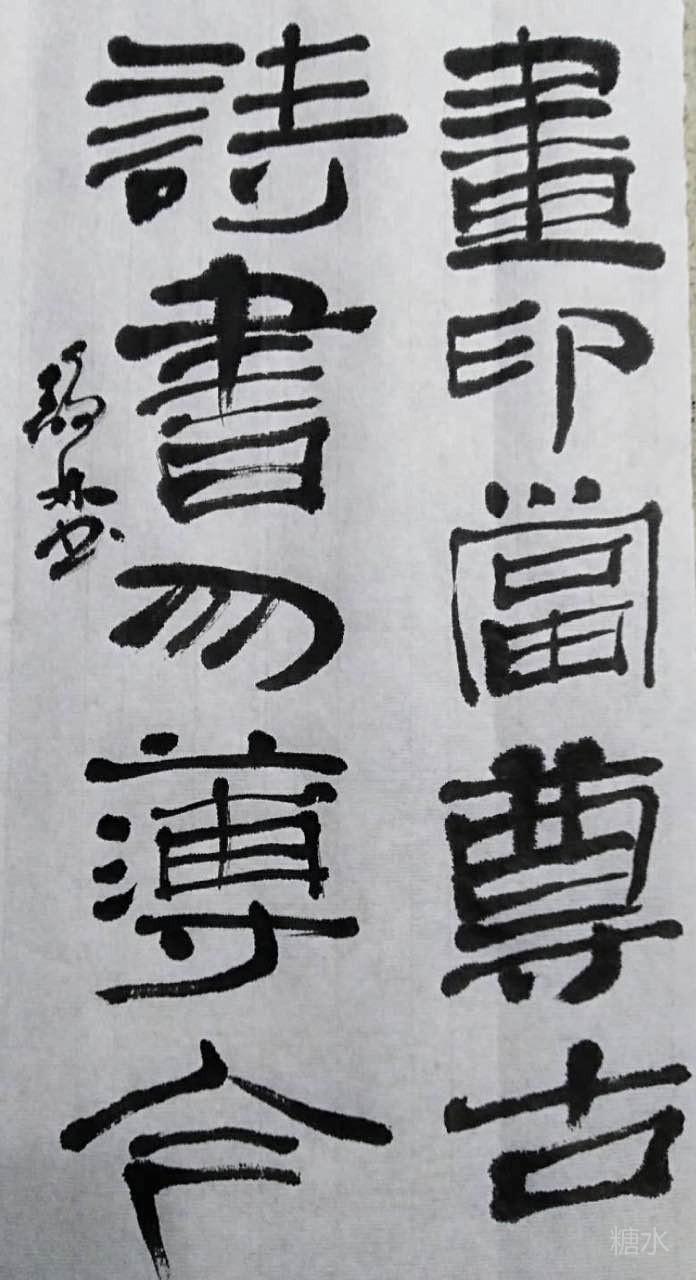 畫印當尊古
詩書勿薄今
糖水